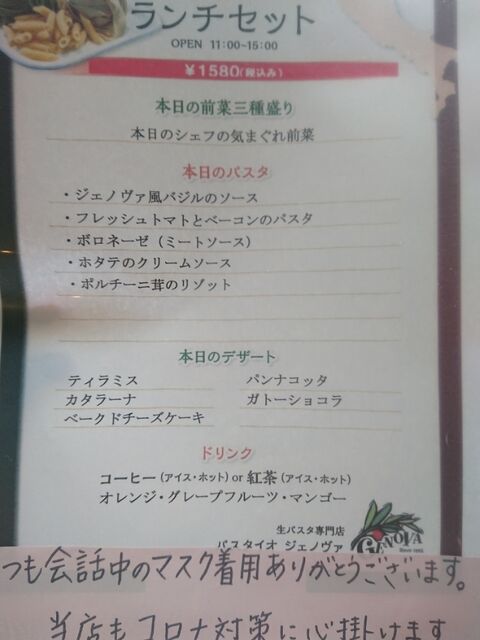 ランチセット
OPEN 11:00~15:00
¥1580(税込み)
本日の前菜三種盛り
本日のシェフの気まぐれ前菜
本日のパスタ
・ジェノヴァ風バジルのソース
・フレッシュトマトとベーコンのパスタ
・ボロネーゼ（ミートソース）
・ホタテのクリームソース
・ポルチーニ茸のリゾット
本日のデザート
ティラミス パンナコッタ
カタラーナ ガトーショコラ
ベークドチーズケーキ
ドリンク
コーヒー（アイス・ホット）or 紅茶（アイス・ホット）
オレンジ・グレープフルーツ・マンゴー
生パスタ専門店
パスタイオ ジェノヴァ
GENOVA
つも会話中のマスク着用ありがとうございます。
当店もコロナ対策に心掛けます